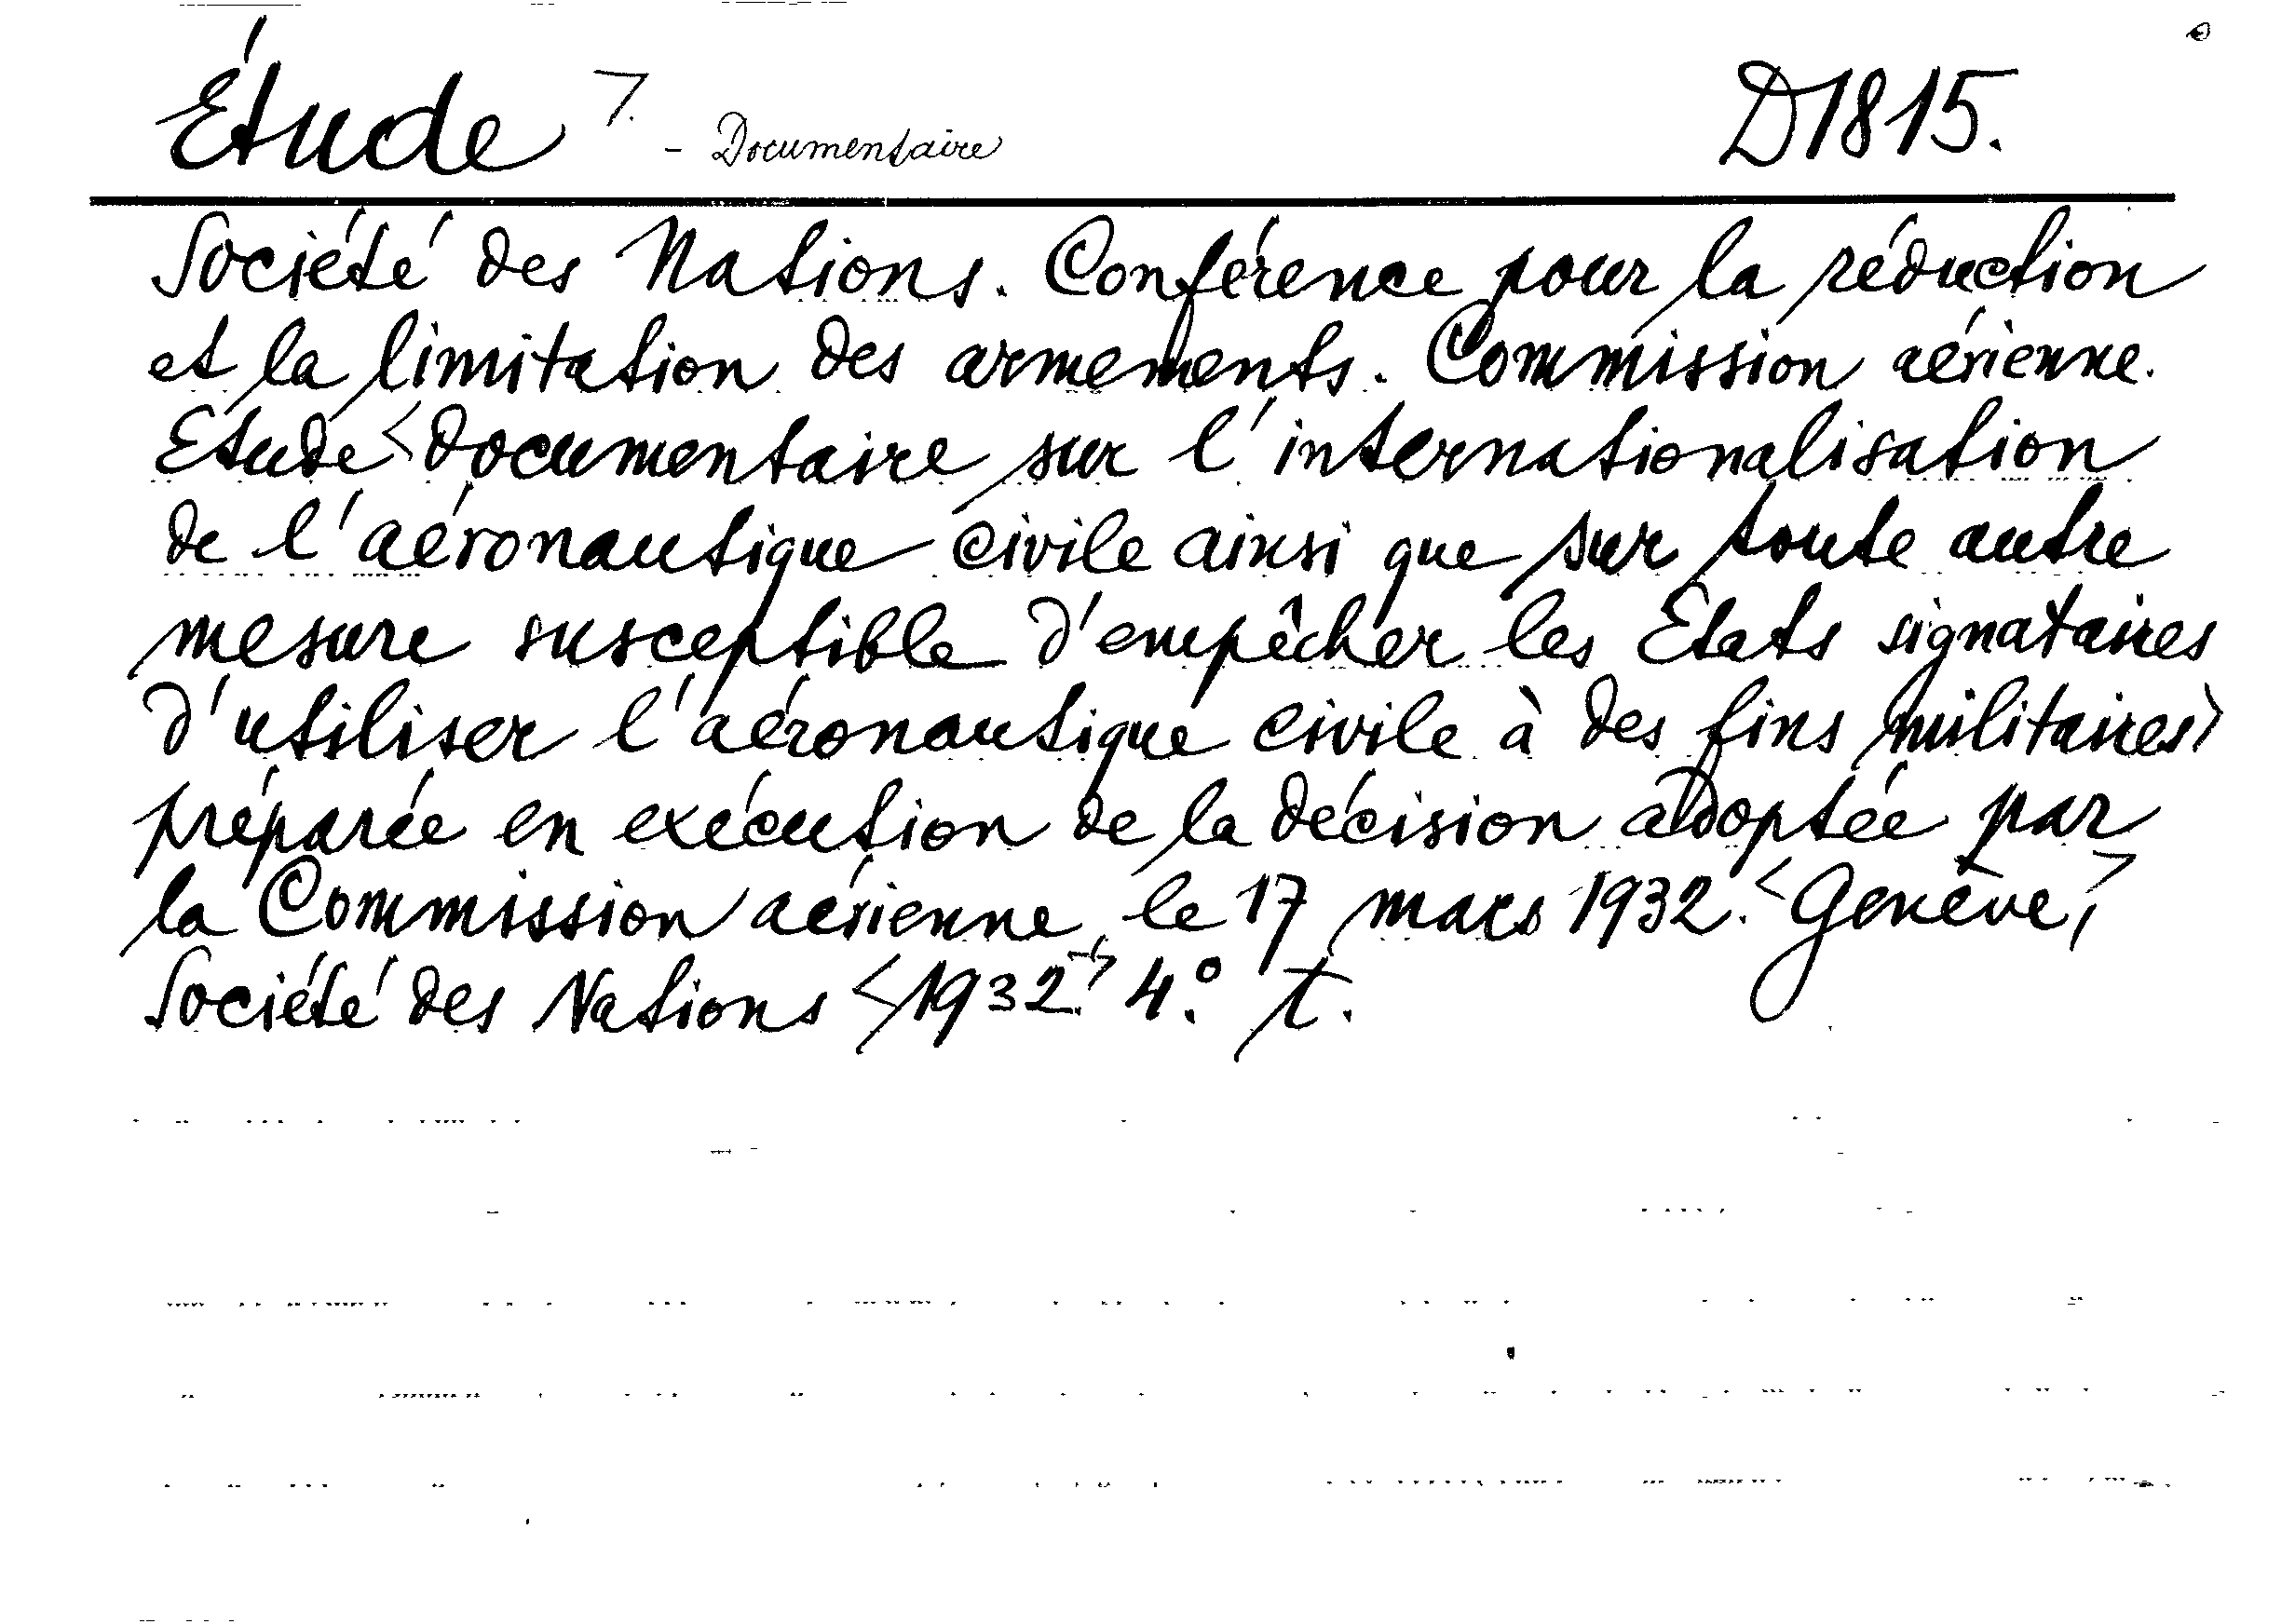 Étude - Documentaire D1815.
Société des Nations. Conférence pour la réduction
et la limitation des armements. Commission aérienne.
Etude documentaire sur l'internationalisation
de l'aéronautique civile ainsi que sur toute autre
mesure susceptible d'empêcher les Etats signataires
d'utiliser l'aéronautique civile à des fins militaires,
préparée en exécution de la décision adoptée par
la Commission aérienne le 17 mars 1932. Genève,
Société des Nations 1932. 4.° T.